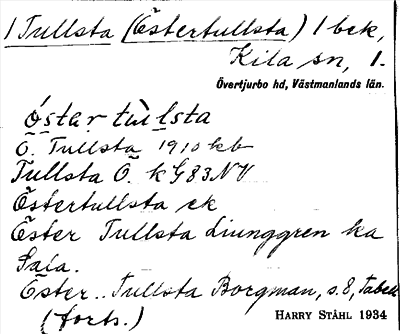 1 Tullsta (Östertullsta) 1 bek,
Kila sn, 1.
Övertjurbo hd, Västmanlands län.
östar tùlsta
Ö. Tullsta 1910 kb
Tullsta Ö. k G83NV
Östertullsta ek
Öster Tullsta Ljunggren ka
Sala.
Öster.. Tullsta Borgman, s. 8, Tabell
(forts.)
HARRY STÅHL 1934